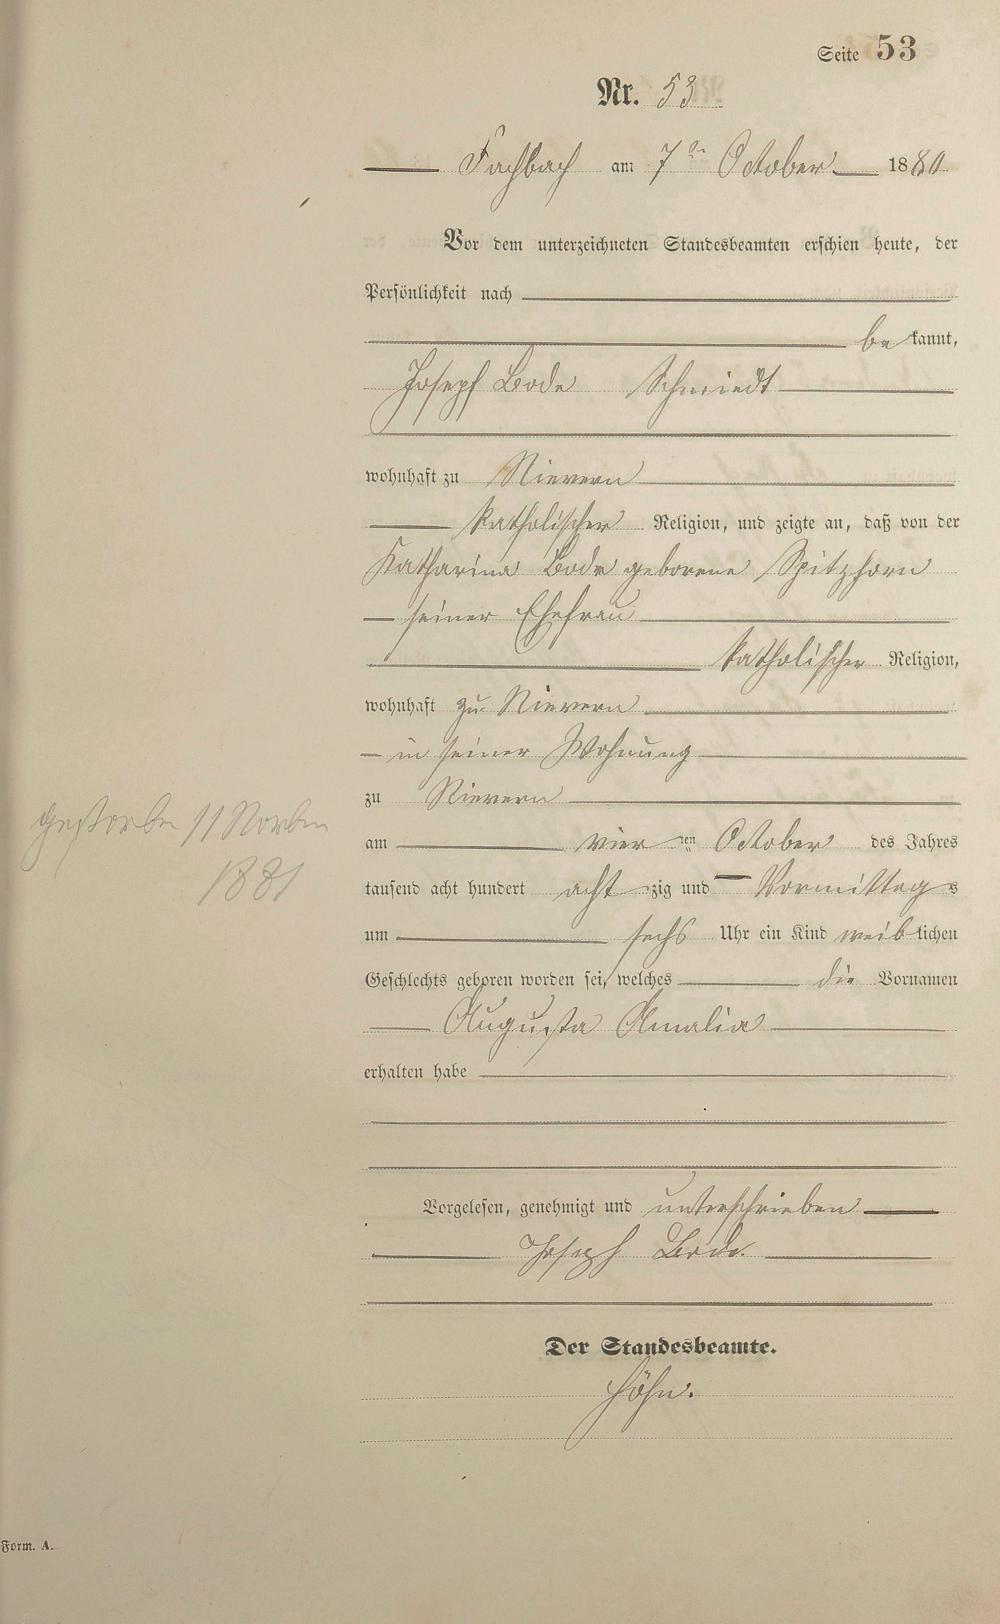 Seite 53
Nr. 53
Fachbach am 7ten October 1880
Vor dem unterzeichneten Standesbeamten erschien heute, der
Persönlichkeit nach
be kannt,
Joseph Bode Schmiedt
wohnhaft zu Nievern
katholischer Religion, und zeigte an, daß von der
Katharina Bode geborene Spitzhorn
seiner Ehefrau
katholischer Religion,
wohnhaft zu Nievern
in seiner Wohnung
zu Nievern
am vier ten October des Jahres
tausend acht hundert acht zig und Vormittags
um sechs Uhr ein Kind weiblichen
Geschlechts geboren worden sei, welches die Vornamen
Augusta Amalia
erhalten habe
Vorgelesen, genehmigt und unterschrieben
Joseph Bode.
Der Standesbeamte.
Höhn.
gestorben 11 Novbr
1881
Form. A.